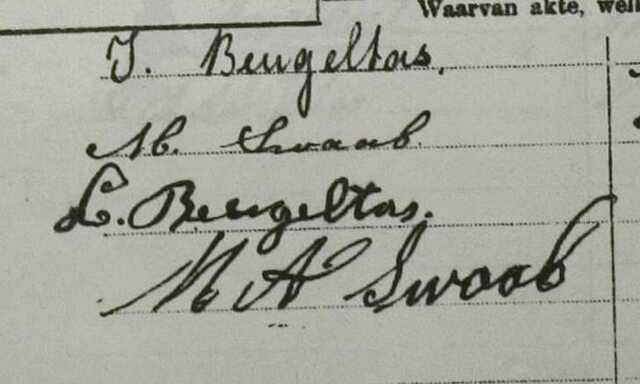 Waarvan akte, well
J. Beugeltas.
M. Swaab.
L. Beugeltas.
M A Swaab